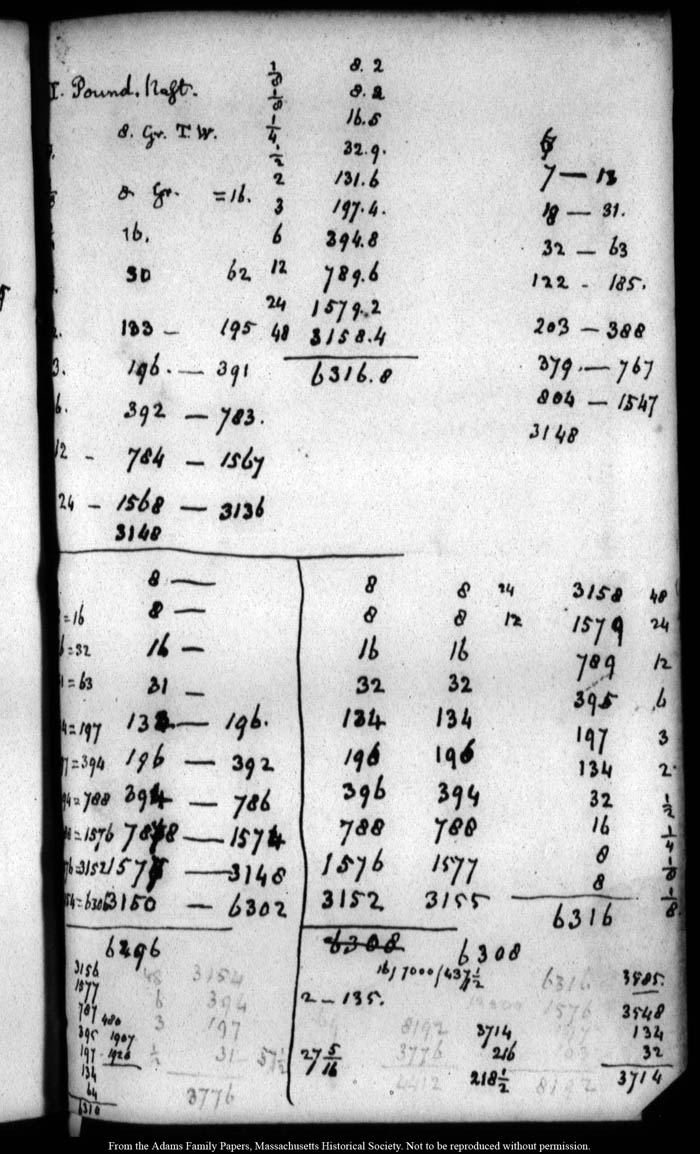 Pound. Haft.
8. Gr. T.W.
8 Gr. =16.
16.
30 62
2. 133 — 195
3. 196. — 391
6. 392 — 783.
12 - 784 — 1567
24 - 1568 — 3136
3148
1/8 8.2
1/8 8.2
1/4 16.5
1/2 32.9.
2 131.6
3 197.4.
6 394.8
12 789.6
24 1579.2
48 3158.4
6316.8
7 — 13
18 — 31.
32 — 63
122 - 185.
203 — 388
379. — 767
804 — 1547
3148
8 —
=16 8 —
=32 16 —
=63 31 —
=197 — 196.
=394 196 — 392
=788 — 786
=1576 — 1574
=3152 — 3148
3150 — 6302
6296
8 8 24
8 8 12
16 16
32 32
134 134
196 196
396 394
788 788
1576 1577
3152 3155
6308 6308
3158 48
1579 24
789 12
395 6
197 3
134 2
32 1/2
16 1/4
8 1/8
8 1/8
6316
3156
1577
787
395
197
134
64
6310
480
1907
1926
48 3154
6 394
3 197
1/2 31
3776
57 1/2
16/7000/437 1/2
2 — 135.
27 5/16
8192
3776
4412
3714
216
218 1/2
6316
1576
8192
3585.
3548
134
32
3714
From the Adams Family Papers, Massachusetts Historical Society. Not to be reproduced without permission.